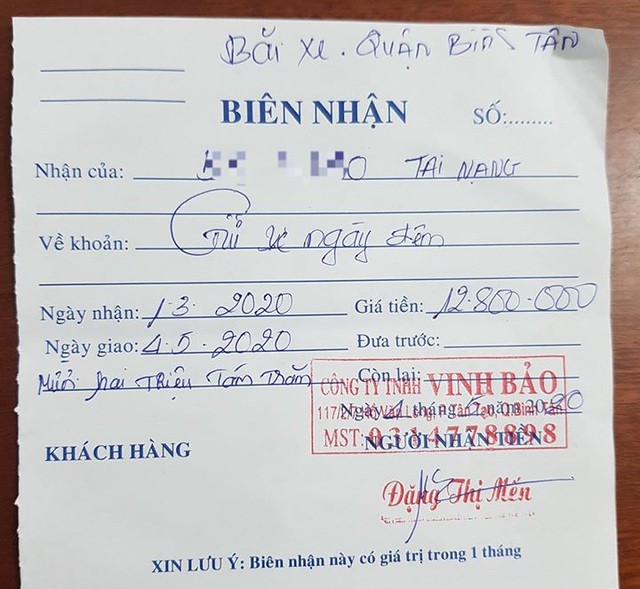 Bãi xe. QUẬN Bình TÂN
BIÊN NHẬN SỐ:.........
Nhận của: TAI NẠNG
Về khoản: Giữ xe ngày đêm
Ngày nhận: 1.3. 2020 Giá tiền: 12.800.000
Ngày giao: 4.5. 2020 Đưa trước:
Mười hai Triệu Tám Trăm Còn lại:
CÔNG TY TNHH VINH BẢO
Ngày 4 tháng 5 năm 2020
MST: 0314778898
KHÁCH HÀNG NGƯỜI NHẬN TIỀN
Đặng Thị Mến
XIN LƯU Ý: Biên nhận này có giá trị trong 1 tháng